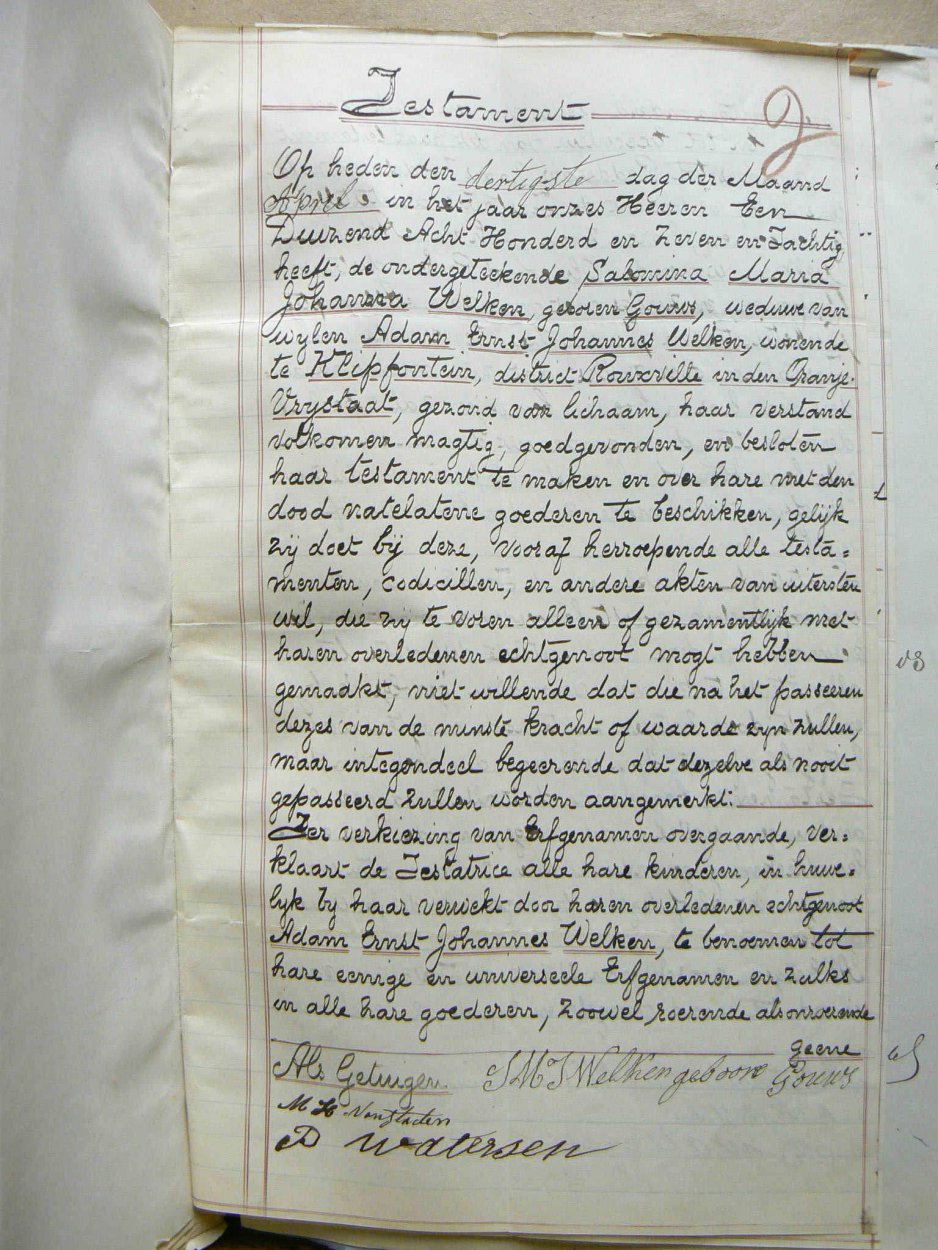 Testament
2
Op heden den dertigste dag der Maand
April in het jaar onzes Heeren Een
Duizend Acht Honderd en Zeven en Tachtig,
heeft, de ondergeteekende Salomina Maria
Johanna Welken, geboren Gouws, weduwe van
wylen Adam Ernst Johannes Welken, wonende
te Klipfontein, district Rouxville in den Oranje
Vrystaat, gezond van lichaam, haar verstand
volkomen magtig, goedgevonden, en besloten
haar testament te maken en over hare met den
dood natelatene goederen te beschikken, gelijk
zij doet bij deze, vooraf herroepende alle testa=
menten, codicillen, en andere akten van uitersten
wil, die zij te voren alleen of gezamentlijk met
haren overledenen echtgenoot mogt hebben
gemaakt, niet willende dat die na het passeeren
dezes van de minste kracht of waarde zyn zullen,
maar integendeel begeerende dat dezelve als nooit
gepasseerd zullen worden aangemerkt.
Ter verkiezing van Erfgenamen overgaande, ver=
klaart de Testatrice alle hare kinderen, in huwe=
lyk by haar verwekt door haren overledenen echtgenoot
Adam Ernst Johannes Welken, te benoemen tot
hare eenige en universeele Erfgenamen en zulks
in alle hare goederen, zoowel roerende als onroerende
geene
Als Getuigen. S M J Welken geboore Gouws
M H Vanstaden
P Watersen